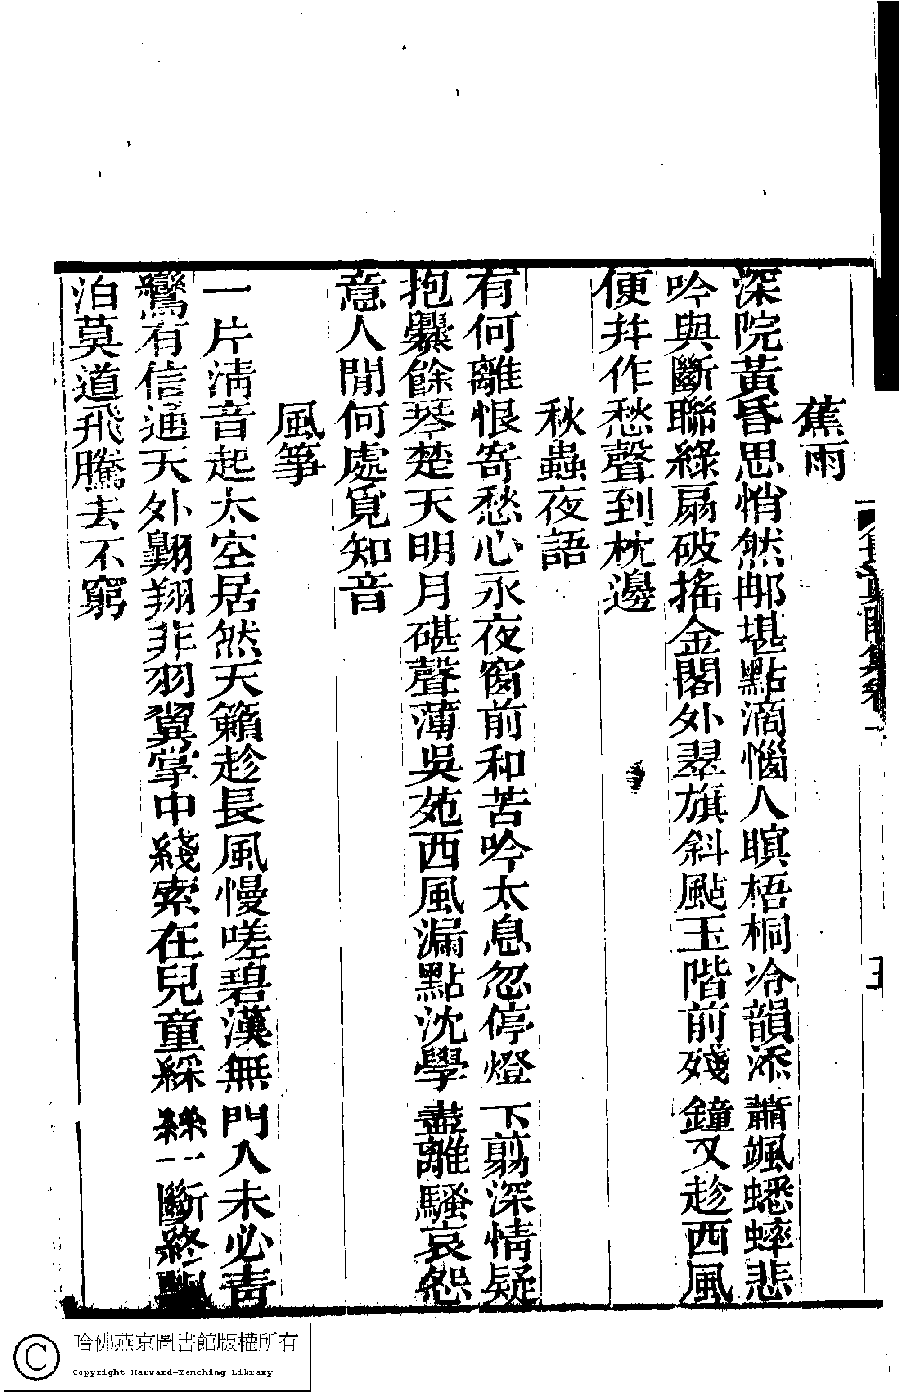 蕉雨
深院黃昏思悄然那堪點滴惱人瞑梧桐冷韻添蕭颯蟋蟀悲
吟與斷聯綠扇破搖金閣外翠旗斜颭玉階前殘鐘又趁西風
便幷作愁聲到枕邊
秋蟲夜語
有何離恨寄愁心永夜窗前和苦吟太息忽停燈下翦深情疑
抱爨餘琴楚天明月碪聲薄吳苑西風漏點沈學盡離騷哀怨
意人閒何處覓知音
風箏
一片淸音起太空居然天籟趁長風慢嗟碧漢無門入未必靑
鸞有信通天外翺翔非羽翼掌中綫索在兒童綵絲一斷終飄
泊莫道飛騰去不窮
五
哈佛燕京圖書館版權所有
Copyright Harvard-Yenching Library